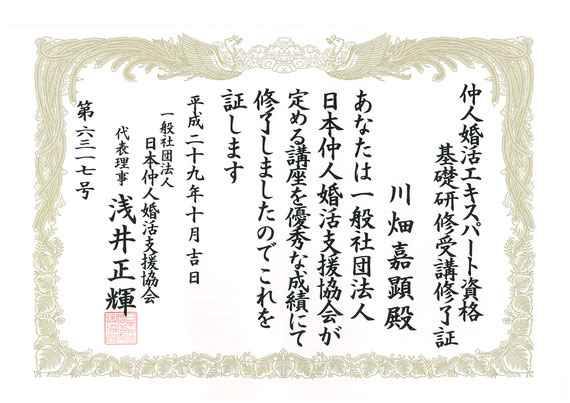 仲人婚活エキスパート資格
基礎研修受講修了証
川畑嘉顕殿
あなたは一般社団法人
日本仲人婚活支援協会が
定める講座を優秀な成績にて
修了しましたのでこれを
証します
平成二十九年十月吉日
一般社団法人
日本仲人婚活支援協会
代表理事 浅井正輝
第六三一七号